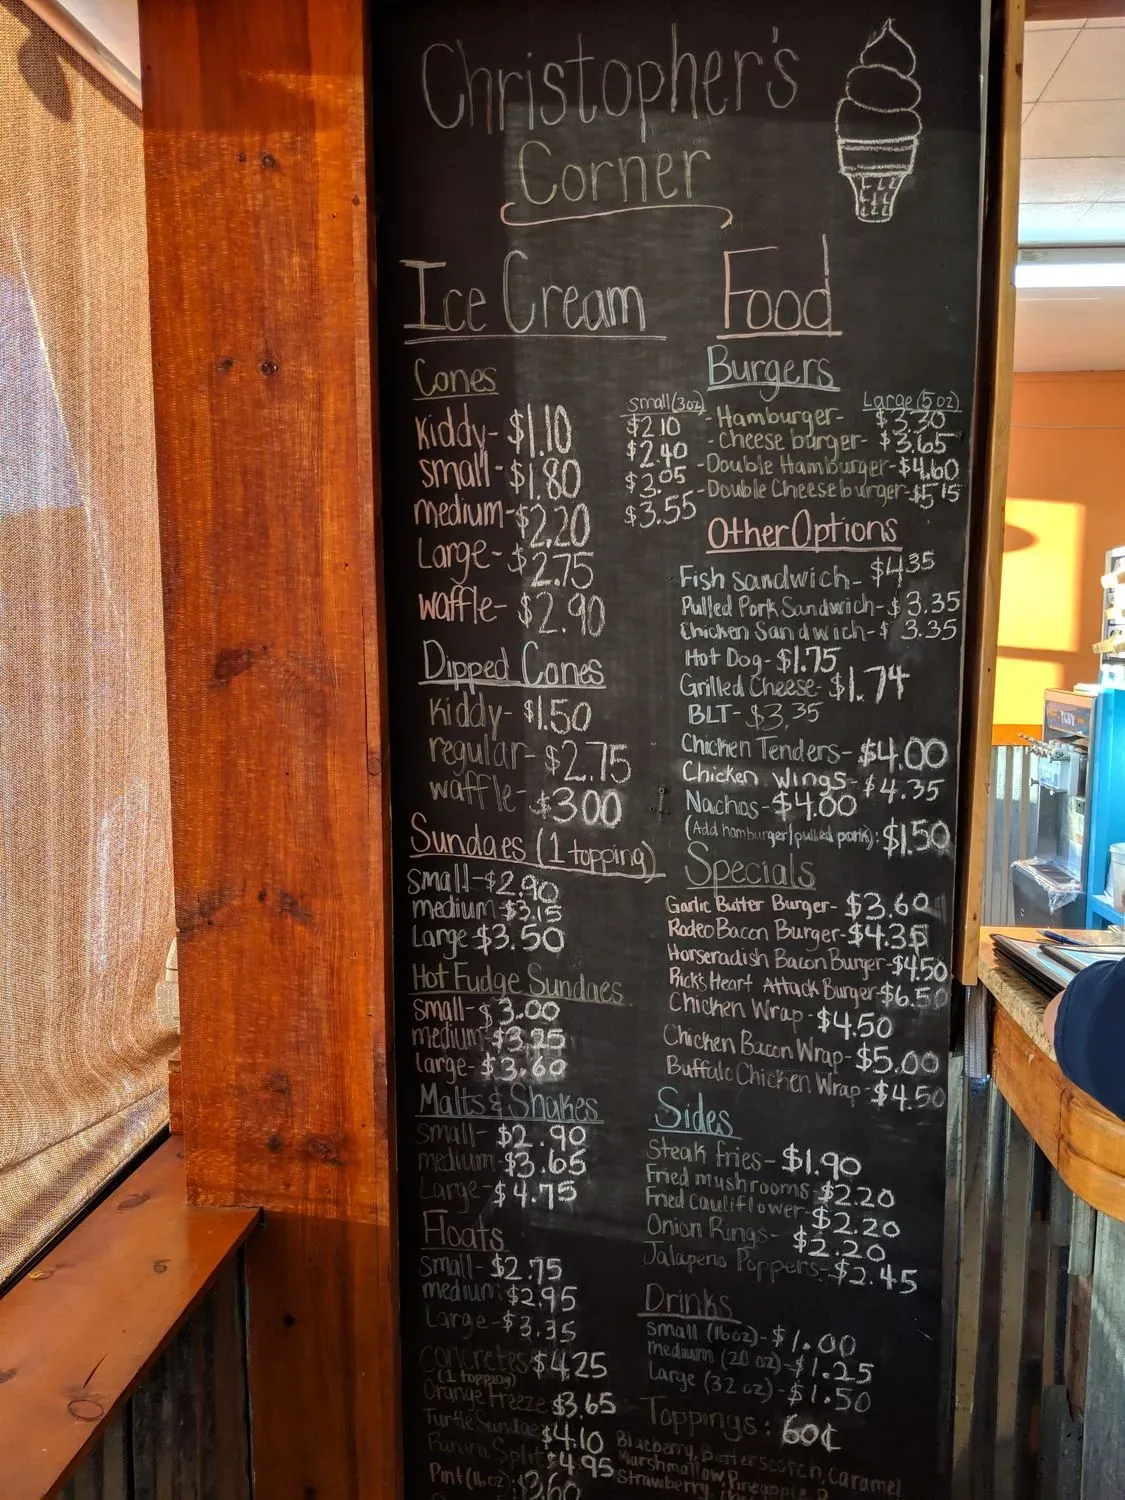 Christopher's
Corner
Ice Cream
Cones
Kiddy- $1.10
small- $1.80
medium- $2.20
Large- $2.75
waffle- $2.90
Dipped Cones
Kiddy- $1.50
regular- $2.75
waffle- $3.00
Sundaes (1 topping)
small- $2.90
medium $3.15
Large $3.50
Hot Fudge Sundaes
small- $3.00
medium- $3.25
large- $3.60
Malts & Shakes
small- $2.90
medium- $3.65
Large- $4.75
Floats
small- $2.75
medium- $2.95
Large- $3.35
Concretes $4.25
(1 topping)
Orange Freeze $3.65
Turtle Sundae $4.10
Banana Split $4.95
Pint (16oz): $3.60
Food
Burgers
small (3oz) Large (5oz)
$2.10 - Hamburger- $3.30
$2.40 - Cheese burger- $3.65
$3.05 - Double Hamburger- $4.60
$3.55 - Double Cheeseburger- $5.15
Other Options
Fish sandwich- $4.35
Pulled Pork Sandwich- $3.35
Chicken Sandwich- $3.35
Hot Dog- $1.75
Grilled Cheese- $1.74
BLT- $3.35
Chicken Tenders- $4.00
Chicken wings- $4.35
Nachos- $4.00
(Add hamburger/pulled pork): $1.50
Specials
Garlic Butter Burger- $3.60
Rodeo Bacon Burger- $4.35
Horseradish Bacon Burger- $4.50
Rick's Heart Attack Burger- $6.50
Chicken Wrap- $4.50
Chicken Bacon Wrap- $5.00
Buffalo Chicken Wrap- $4.50
Sides
Steak fries- $1.90
Fried mushrooms- $2.20
Fried Cauliflower- $2.20
Onion Rings- $2.20
Jalapeno Poppers- $2.45
Drinks
small (16oz)- $1.00
medium (20 oz)- $1.25
Large (32 oz)- $1.50
Toppings: 60¢
Blueberry, Butterscotch, Caramel
Marshmallow, Pineapple,
Strawberry,